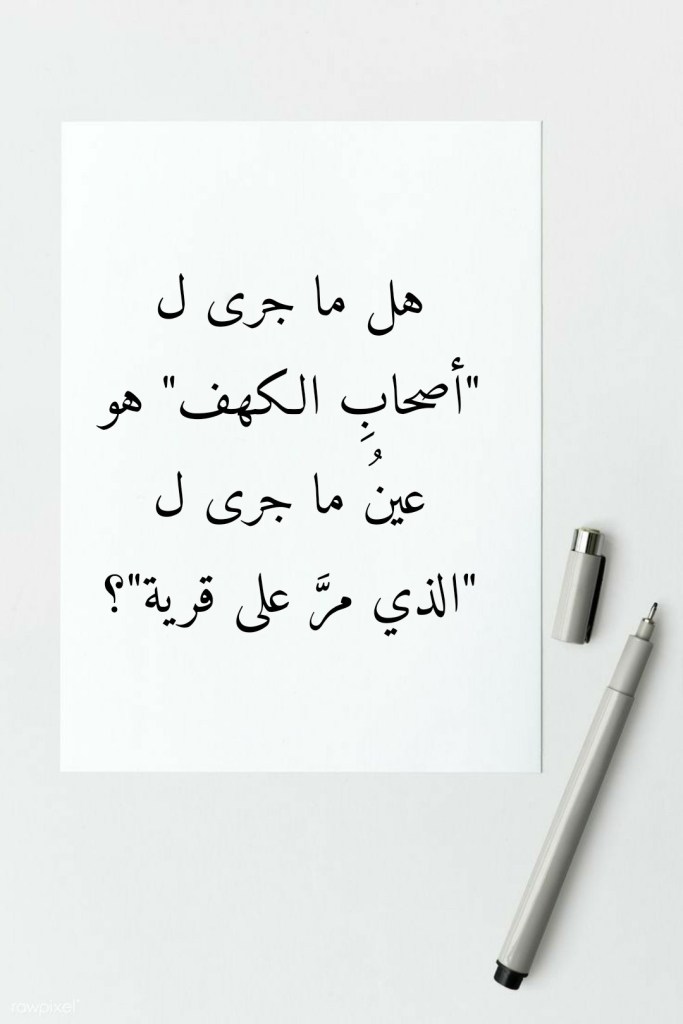 هل ما جرى ل
"أصحابِ الكهف" هو
عينُ ما جرى ل
"الذي مرَّ على قرية"؟
rawpixel